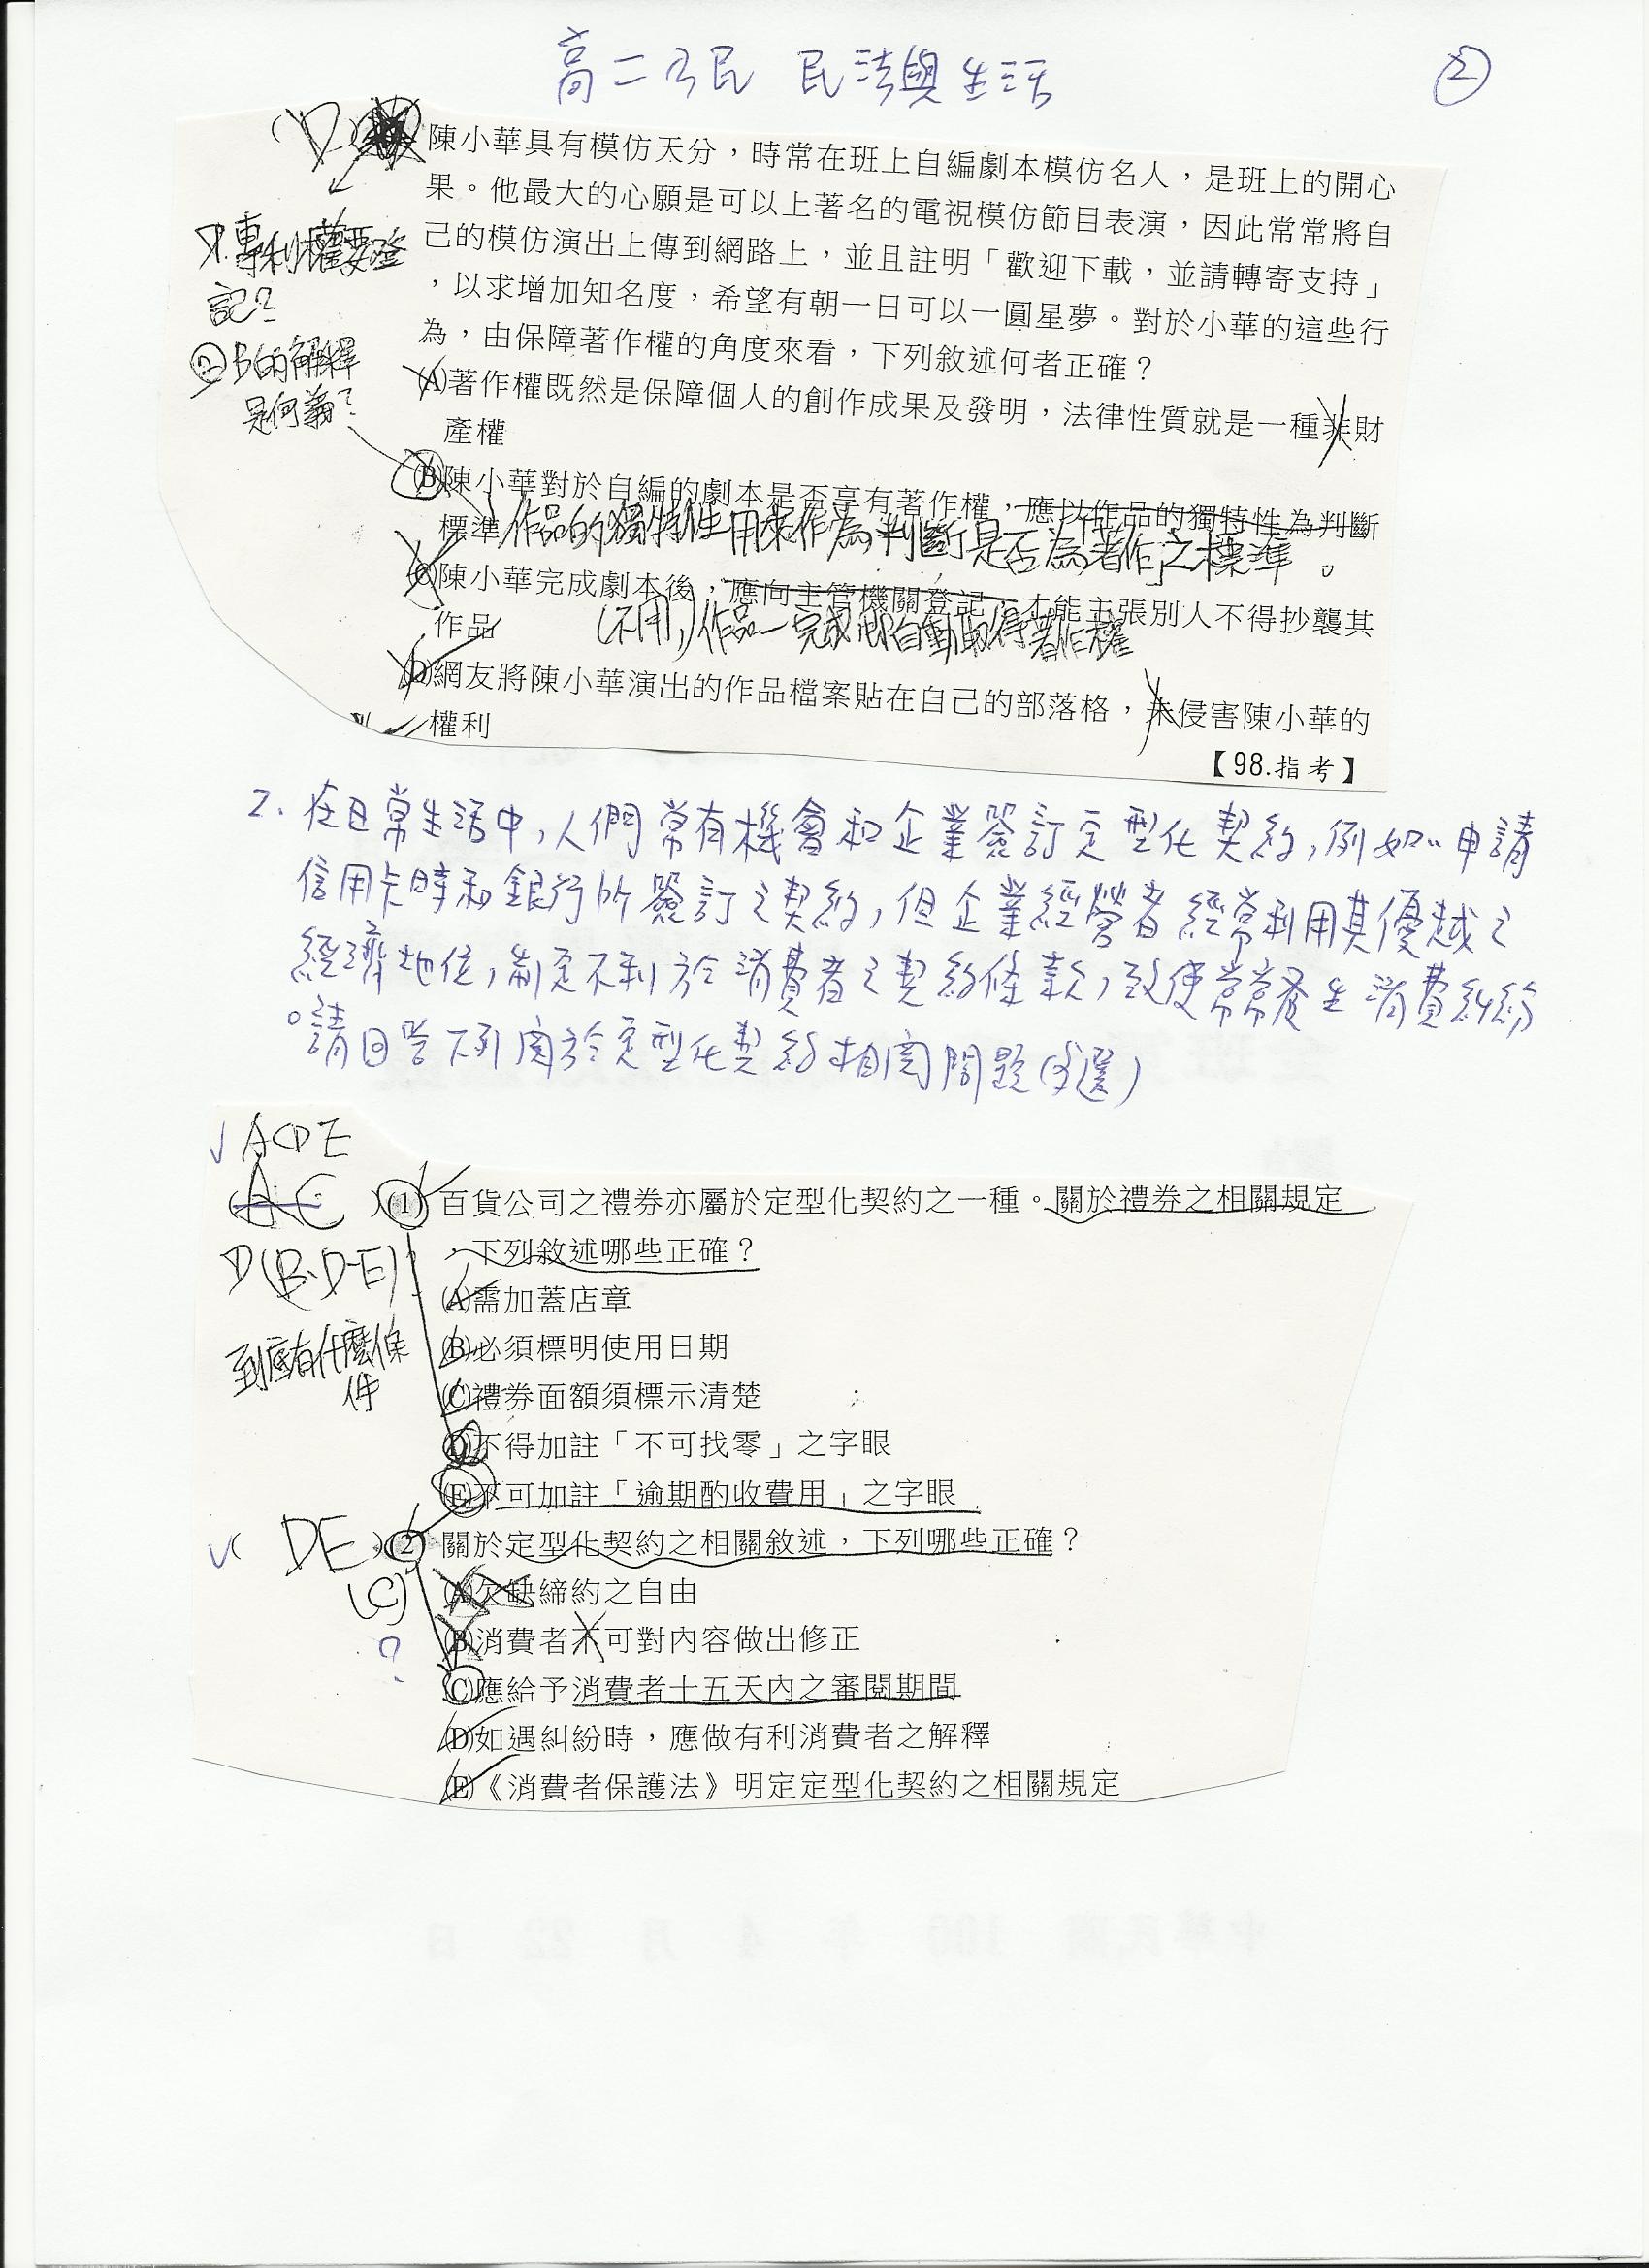 高二公民 民法與生活
②
(D)
陳小華具有模仿天分，時常在班上自編劇本模仿名人，是班上的開心
果。他最大的心願是可以上著名的電視模仿節目表演，因此常常將自
己的模仿演出上傳到網路上，並且註明「歡迎下載，並請轉寄支持」
，以求增加知名度，希望有朝一日可以一圓星夢。對於小華的這些行
為，由保障著作權的角度來看，下列敘述何者正確？
專利權要登
記？
②B的解釋
是何義？
(A)著作權既然是保障個人的創作成果及發明，法律性質就是一種非財
產權
(B)陳小華對於自編的劇本是否享有著作權，應以作品的獨特性為判斷
標準
作品的獨特性用來作為判斷是否為「著作」之標準。
(C)陳小華完成劇本後，應向主管機關登記，才能主張別人不得抄襲其
作品
(不用，)作品一完成即自動取得著作權
(D)網友將陳小華演出的作品檔案貼在自己的部落格，未侵害陳小華的
權利
【98.指考】
2. 在日常生活中，人們常有機會和企業簽訂定型化契約，例如：申請
信用卡時和銀行所簽訂之契約，但企業經營者經常利用其優越之
經濟地位，制定不利於消費者之契約條款，致使常常發生消費糾紛
。請回答下列關於定型化契約相關問題(多選)
ACDE
(AC)(1)百貨公司之禮券亦屬於定型化契約之一種。關於禮券之相關規定
，下列敘述哪些正確？
D(B、D、E)？
到底有什麼條
件
(A)需加蓋店章
(B)必須標明使用日期
(C)禮券面額須標示清楚
(D)不得加註「不可找零」之字眼
(E)不可加註「逾期酌收費用」之字眼
(DE)(2)關於定型化契約之相關敘述，下列哪些正確？
(C)
?
(A)欠缺締約之自由
(B)消費者不可對內容做出修正
(C)應給予消費者十五天內之審閱期間
(D)如遇糾紛時，應做有利消費者之解釋
(E)《消費者保護法》明定定型化契約之相關規定